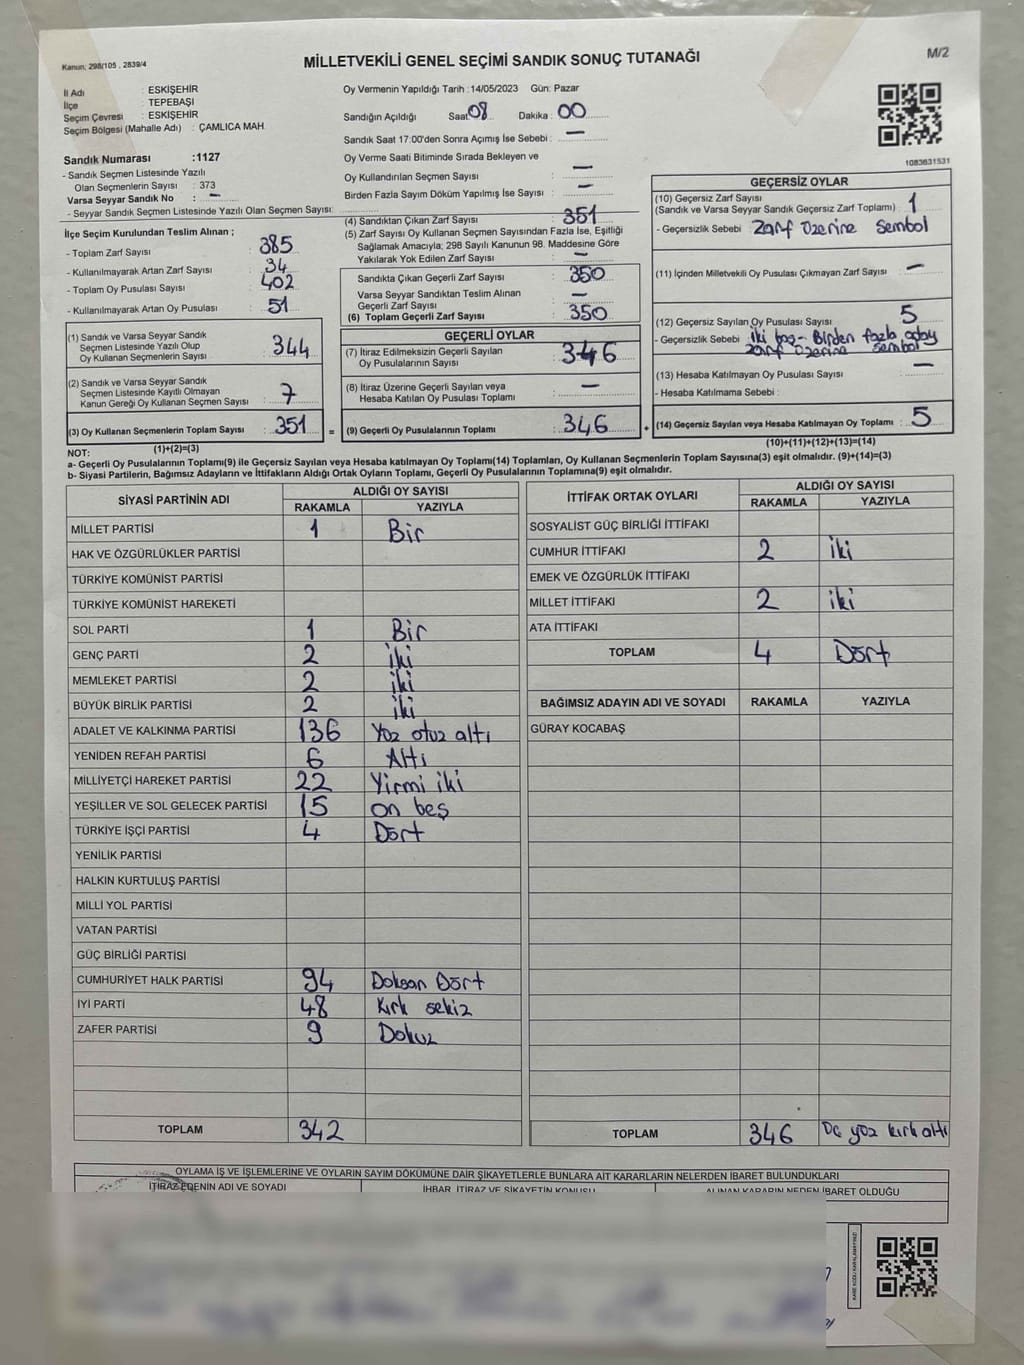 Kanun; 298/105 , 2839/4
MİLLETVEKİLİ GENEL SEÇİMİ SANDIK SONUÇ TUTANAĞI
M/2
İl Adı : ESKİŞEHİR
İlçe : TEPEBAŞI
Seçim Çevresi : ESKİŞEHİR
Seçim Bölgesi (Mahalle Adı) : ÇAMLICA MAH.
Sandık Numarası :1127
- Sandık Seçmen Listesinde Yazılı
Olan Seçmenlerin Sayısı : 373
Varsa Seyyar Sandık No : –
- Seyyar Sandık Seçmen Listesinde Yazılı Olan Seçmen Sayısı:
İlçe Seçim Kurulundan Teslim Alınan ;
- Toplam Zarf Sayısı : 385
- Kullanılmayarak Artan Zarf Sayısı : 34
- Toplam Oy Pusulası Sayısı : 402
- Kullanılmayarak Artan Oy Pusulası : 51
(1) Sandık ve Varsa Seyyar Sandık
Seçmen Listesinde Yazılı Olup
Oy Kullanan Seçmenlerin Sayısı : 344
(2) Sandık ve Varsa Seyyar Sandık
Seçmen Listesinde Kayıtlı Olmayan
Kanun Gereği Oy Kullanan Seçmen Sayısı : 7
(3) Oy Kullanan Seçmenlerin Toplam Sayısı : 351
(1)+(2)=(3)
Oy Vermenin Yapıldığı Tarih :14/05/2023 Gün: Pazar
Sandığın Açıldığı Saat: 08 Dakika : 00
Sandık Saat 17:00'den Sonra Açımış İse Sebebi : –
Oy Verme Saati Bitiminde Sırada Bekleyen ve
Oy Kullandırılan Seçmen Sayısı : –
Birden Fazla Sayım Döküm Yapılmış İse Sayısı : –
(4) Sandıktan Çıkan Zarf Sayısı : 351
(5) Zarf Sayısı Oy Kullanan Seçmen Sayısından Fazla İse, Eşitliği
Sağlamak Amacıyla; 298 Sayılı Kanunun 98. Maddesine Göre
Yakılarak Yok Edilen Zarf Sayısı : –
Sandıkta Çıkan Geçerli Zarf Sayısı : 350
Varsa Seyyar Sandıktan Teslim Alınan
Geçerli Zarf Sayısı : –
(6) Toplam Geçerli Zarf Sayısı : 350
GEÇERLİ OYLAR
(7) İtiraz Edilmeksizin Geçerli Sayılan
Oy Pusulalarının Sayısı : 346
(8) İtiraz Üzerine Geçerli Sayılan veya
Hesaba Katılan Oy Pusulası Toplamı : –
= (9) Geçerli Oy Pusulalarının Toplamı : 346 +
1083631531
GEÇERSİZ OYLAR
(10) Geçersiz Zarf Sayısı
(Sandık ve Varsa Seyyar Sandık Geçersiz Zarf Toplamı) : 1
- Geçersizlik Sebebi : Zarf üzerine Sembol
(11) İçinden Milletvekili Oy Pusulası Çıkmayan Zarf Sayısı : –
(12) Geçersiz Sayılan Oy Pusulası Sayısı : 5
- Geçersizlik Sebebi : iki boş - Birden fazla aday
zarf üzerine sembol
(13) Hesaba Katılmayan Oy Pusulası Sayısı : –
- Hesaba Katılmama Sebebi :
(14) Geçersiz Sayılan veya Hesaba Katılmayan Oy Toplamı : 5
(10)+(11)+(12)+(13)=(14)
NOT:
a- Geçerli Oy Pusulalarının Toplamı(9) ile Geçersiz Sayılan veya Hesaba katılmayan Oy Toplamı(14) Toplamları, Oy Kullanan Seçmenlerin Toplam Sayısına(3) eşit olmalıdır. (9)+(14)=(3)
b- Siyasi Partilerin, Bağımsız Adayların ve İttifakların Aldığı Ortak Oyların Toplamı, Geçerli Oy Pusulalarının Toplamına(9) eşit olmalıdır.
SİYASİ PARTİNİN ADI ALDIĞI OY SAYISI
RAKAMLA YAZIYLA
MİLLET PARTİSİ 1 Bir
HAK VE ÖZGÜRLÜKLER PARTİSİ
TÜRKİYE KOMÜNİST PARTİSİ
TÜRKİYE KOMÜNİST HAREKETİ
SOL PARTİ 1 Bir
GENÇ PARTİ 2 iki
MEMLEKET PARTİSİ 2 iki
BÜYÜK BİRLİK PARTİSİ 2 iki
ADALET VE KALKINMA PARTİSİ 136 Yüz otuz altı
YENİDEN REFAH PARTİSİ 6 Altı
MİLLİYETÇİ HAREKET PARTİSİ 22 Yirmi iki
YEŞİLLER VE SOL GELECEK PARTİSİ 15 on beş
TÜRKİYE İŞÇİ PARTİSİ 4 Dört
YENİLİK PARTİSİ
HALKIN KURTULUŞ PARTİSİ
MİLLİ YOL PARTİSİ
VATAN PARTİSİ
GÜÇ BİRLİĞİ PARTİSİ
CUMHURİYET HALK PARTİSİ 94 Doksan Dört
İYİ PARTİ 48 Kırk sekiz
ZAFER PARTİSİ 9 Dokuz
TOPLAM 342
İTTİFAK ORTAK OYLARI ALDIĞI OY SAYISI
RAKAMLA YAZIYLA
SOSYALİST GÜÇ BİRLİĞİ İTTİFAKI
CUMHUR İTTİFAKI 2 iki
EMEK VE ÖZGÜRLÜK İTTİFAKI
MİLLET İTTİFAKI 2 iki
ATA İTTİFAKI
TOPLAM 4 Dört
BAĞIMSIZ ADAYIN ADI VE SOYADI RAKAMLA YAZIYLA
GÜRAY KOCABAŞ
TOPLAM 346 üç yüz kırk altı
OYLAMA İŞ VE İŞLEMLERİNE VE OYLARIN SAYIM DÖKÜMÜNE DAİR ŞİKAYETLERLE BUNLARA AİT KARARLARIN NELERDEN İBARET BULUNDUKLARI
İTİRAZ EDENİN ADI VE SOYADI İHBAR, İTİRAZ VE ŞİKAYETİN KONUSU ALINAN KARARIN NEDEN İBARET OLDUĞU